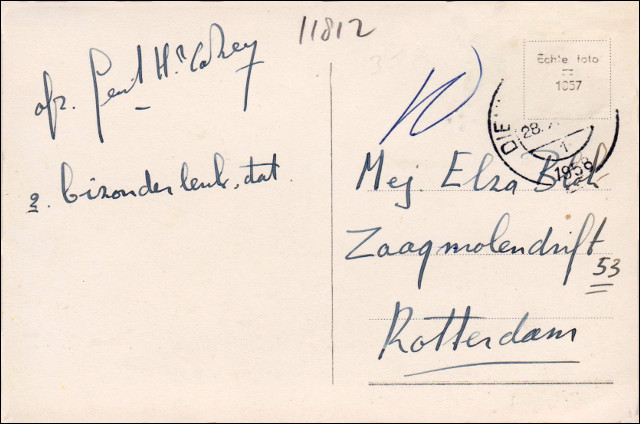 11812
afz. Gerard H. Cohey
2. bizonder leuk, dat.
Echte foto
1037
DIE
28.
1
1959
Mej. Elza Blok
Zaagmolendrift
53
Rotterdam